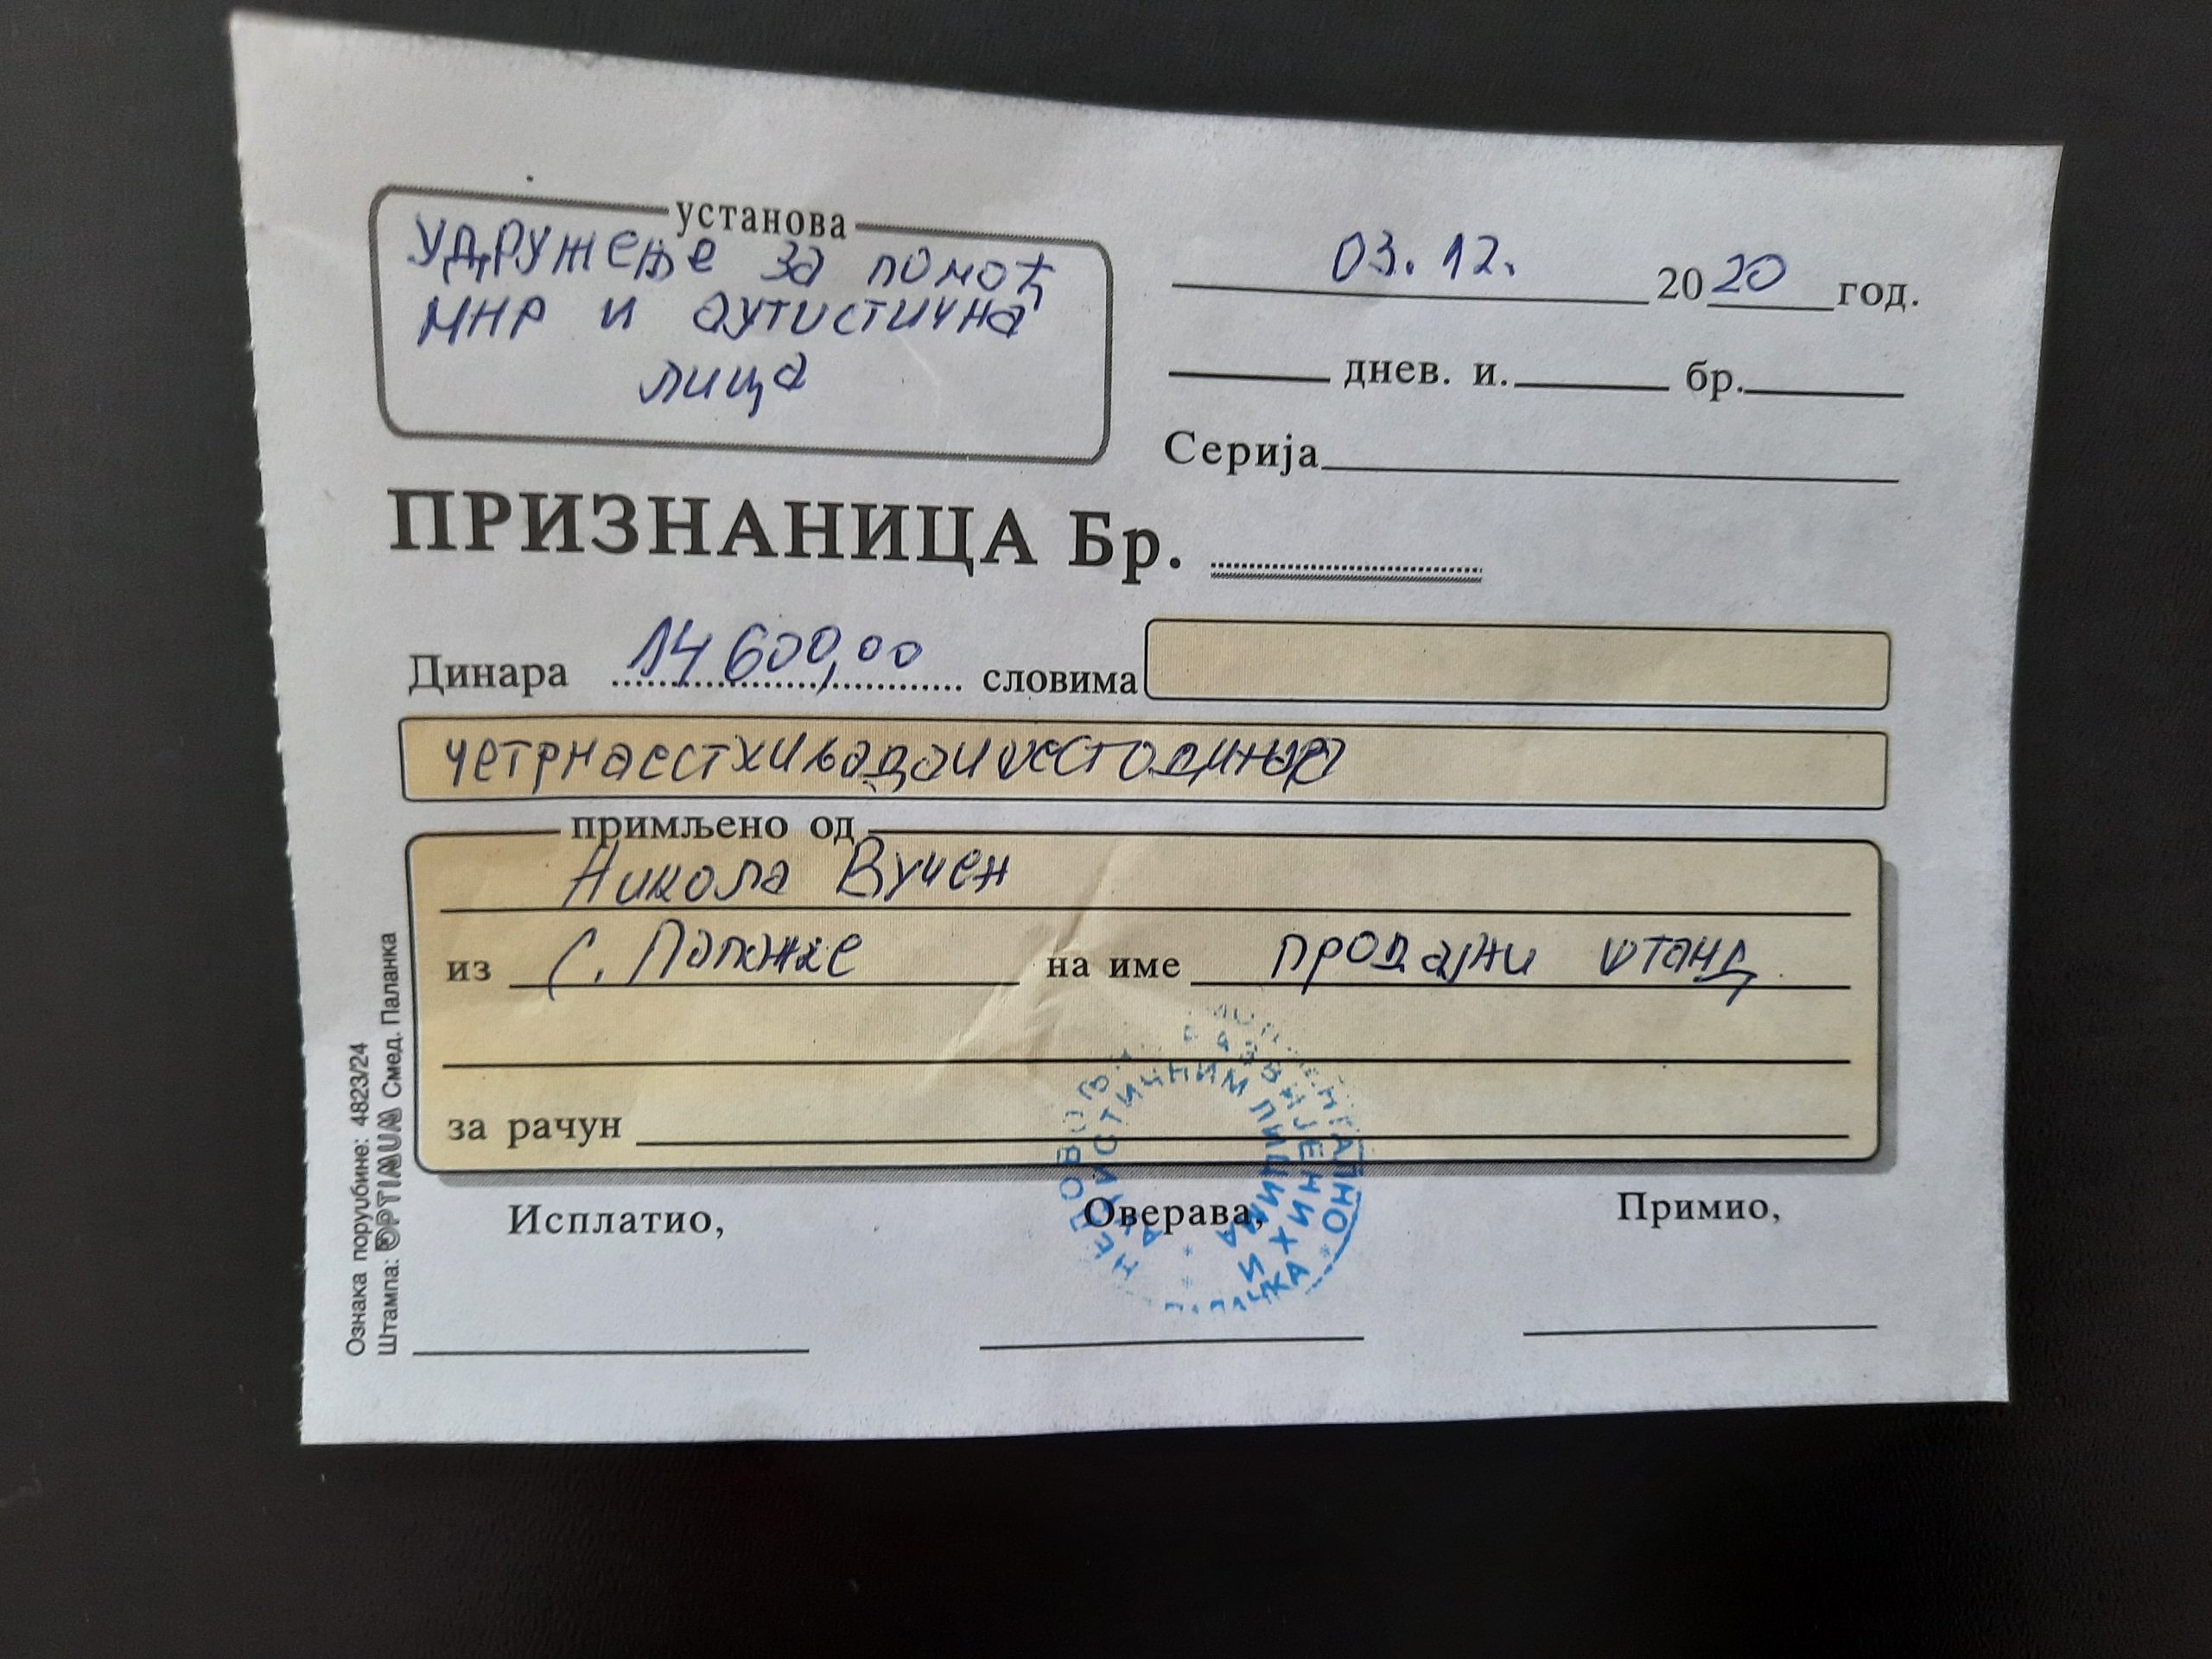 установа
Удружење за помоћ
МНР и аутистична
лица
03. 12. 2020 год.
днев. и. бр.
Серија
ПРИЗНАНИЦА Бр.
Динара 14 600,00 словима
примљено од
Никола Вучен
из С. Паланке на име продајни штанд
за рачун
Исплатио, Оверава, Примио,
Ознака поруџбине: 4823/24
Штампа: OPTIMUM Смед. Паланка
АУТИСТИЧНИМ ЛИЦИМА И